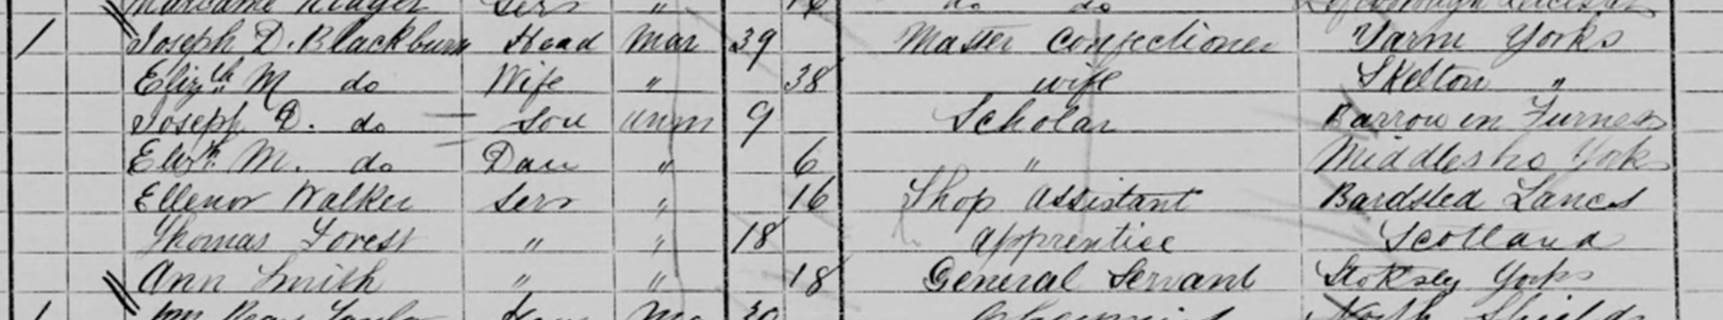 Serv "
1 Joseph D. Blackburn Head Mar 39 Master Confectioner Yarm Yorks
Elizth M do Wife " 38 wife Skelton "
Joseph D. do Son unm 9 Scholar Barrow in Furness
Elizth M. do Dau " 6 " Middlesbro York
Ellenor Walker Serv " 16 Shop Assistant Bardsled Lancs
Thomas Forest " " 18 apprentice Scotland
Ann Smith " " 18 General Servant Stoksley Yorks
1 30 North Shields